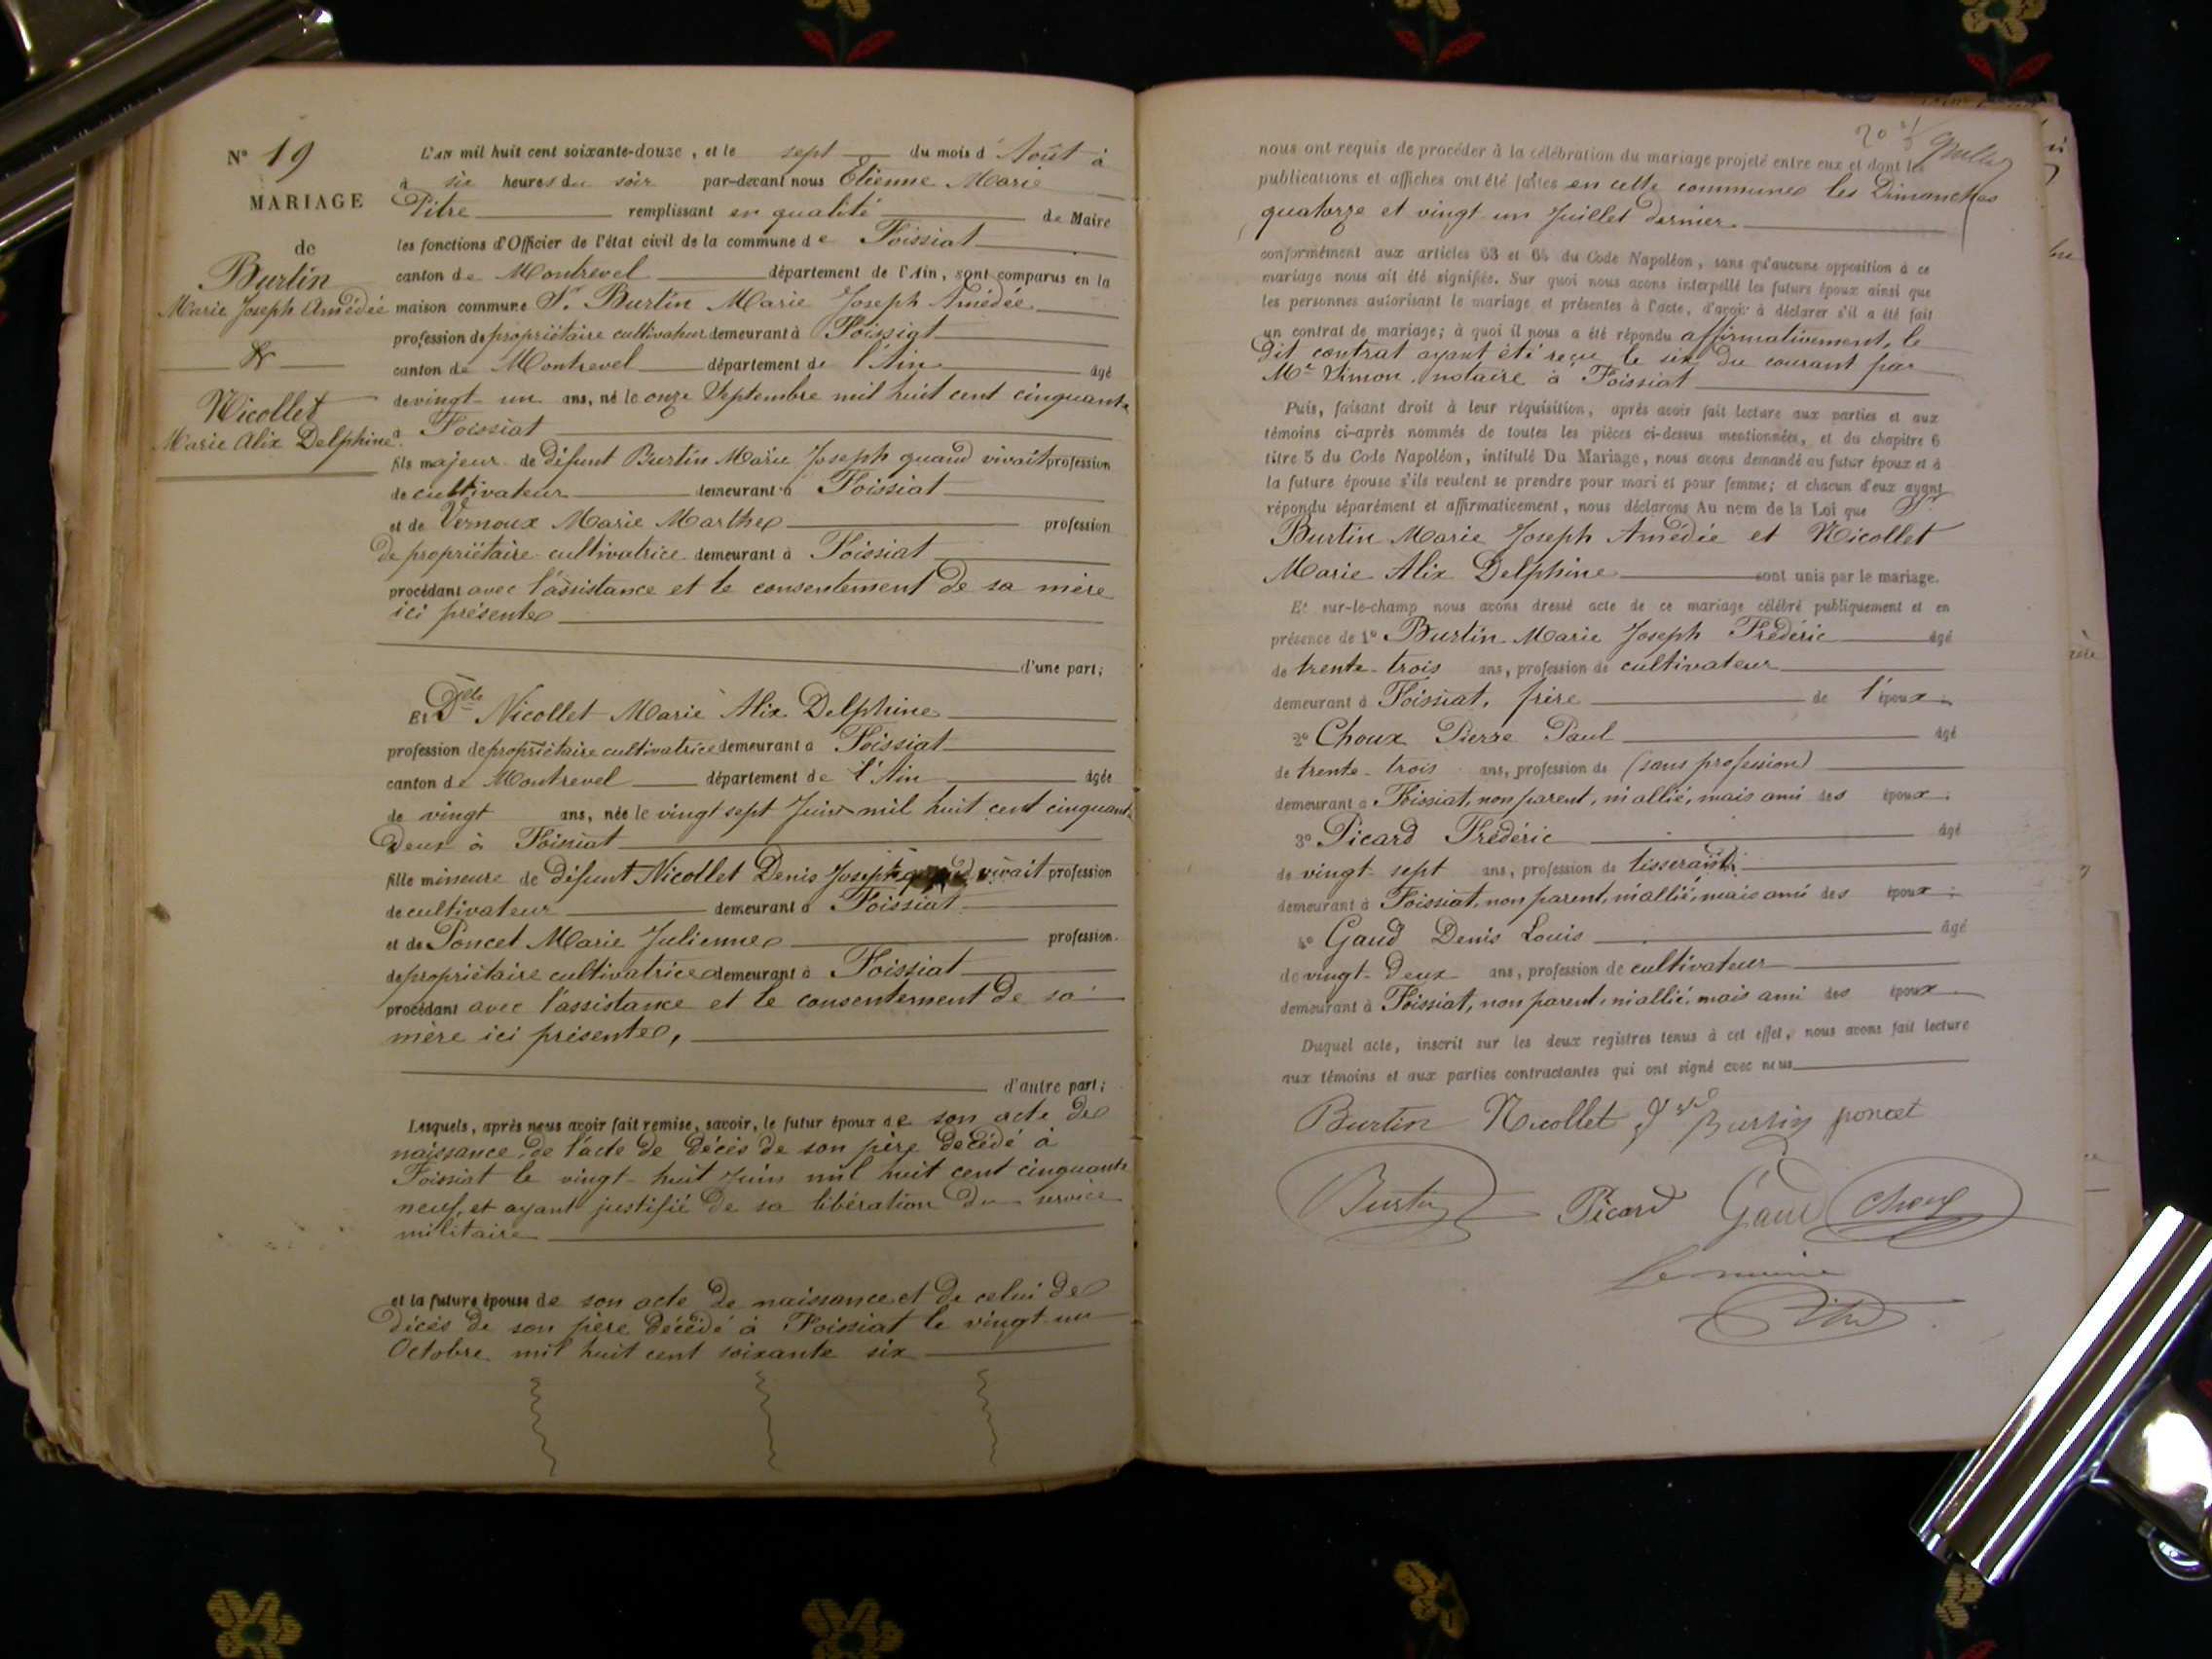 N° 19
MARIAGE
de
Burtin
Marie Joseph Amédée
&
Nicollet
Marie Alix Delphine
L'AN mil huit cent soixante-douze, et le sept du mois d' Août à
à six heures du soir par-devant nous Etienne Marie
Pitre remplissant en qualité de Maire
les fonctions d'Officier de l'état civil de la commune de Foissiat
canton de Montrevel département de l'Ain, sont comparus en la
maison commune Sr. Burtin Marie Joseph Amédée
profession de propriétaire cultivateur demeurant à Foissiat
canton de Montrevel département de l'Ain âgé
de vingt-un ans, né le onze Septembre mil huit cent cinquante
à Foissiat
fils majeur de défunt Burtin Marie Joseph quand vivait profession
de cultivateur demeurant à Foissiat
et de Vernoux Marie Marthe profession
de propriétaire cultivatrice demeurant à Foissiat
procédant avec l'assistance et le consentement de sa mère
ici présente
d'une part;
Et Dlle Nicollet Marie Alix Delphine
profession de propriétaire cultivatrice demeurant à Foissiat
canton de Montrevel département de l'Ain âgée
de vingt ans, née le vingt sept Juin mil huit cent cinquante
deux à Foissiat
fille mineure de défunt Nicollet Denis Joseph quand vivait profession
de cultivateur demeurant à Foissiat
et de Poncet Marie Julienne profession
de propriétaire cultivatrice demeurant à Foissiat
procédant avec l'assistance et le consentement de sa
mère ici présente,
d'autre part;
Lesquels, après nous avoir fait remise, savoir, le futur époux de son acte de
naissance, de l'acte de décès de son père décédé à
Foissiat le vingt-huit Juin mil huit cent cinquante
neuf, et ayant justifié de sa libération du service
militaire
et la future épouse de son acte de naissance et de celui de
décès de son père décédé à Foissiat le vingt-un
Octobre mil huit cent soixante six
nous ont requis de procéder à la célébration du mariage projeté entre eux et dont les
publications et affiches ont été faites en cette commune les Dimanches
quatorze et vingt-un Juillet dernier
conformément aux articles 63 et 64 du Code Napoléon, sans qu'aucune opposition à ce
mariage nous ait été signifiée. Sur quoi nous avons interpellé les futurs époux ainsi que
les personnes autorisant le mariage et présentes à l'acte, d'avoir à déclarer s'il a été fait
un contrat de mariage; à quoi il nous a été répondu affirmativement, le
dit contrat ayant été reçu le six du courant par
Me Simon, notaire à Foissiat
Puis, faisant droit à leur réquisition, après avoir fait lecture aux parties et aux
témoins ci-après nommés de toutes les pièces ci-dessus mentionnées, et du chapitre 6
titre 5 du Code Napoléon, intitulé Du Mariage, nous avons demandé au futur époux et à
la future épouse s'ils veulent se prendre pour mari et pour femme; et chacun d'eux ayant
répondu séparément et affirmativement, nous déclarons Au nom de la Loi que Sr.
Burtin Marie Joseph Amédée et Nicollet
Marie Alix Delphine sont unis par le mariage.
Et sur-le-champ nous avons dressé acte de ce mariage célébré publiquement et en
présence de 1° Burtin Marie Joseph Frédéric âgé
de trente-trois ans, profession de cultivateur
demeurant à Foissiat, frère de l'époux;
2° Choux Pierre Paul âgé
de trente-trois ans, profession de (sans profession)
demeurant à Foissiat, non parent, ni allié, mais ami des époux;
3° Picard Frédéric âgé
de vingt-sept ans, profession de tisserand
demeurant à Foissiat, non parent, ni allié, mais ami des époux;
4° Gaud Denis Louis âgé
de vingt-deux ans, profession de cultivateur
demeurant à Foissiat, non parent, ni allié, mais ami des époux
Duquel acte, inscrit sur les deux registres tenus à cet effet, nous avons fait lecture
aux témoins et aux parties contractantes qui ont signé avec nous
Burtin Nicollet Burtin poncet
Burtin Picard Gaud Choux
Le maire
Pitre